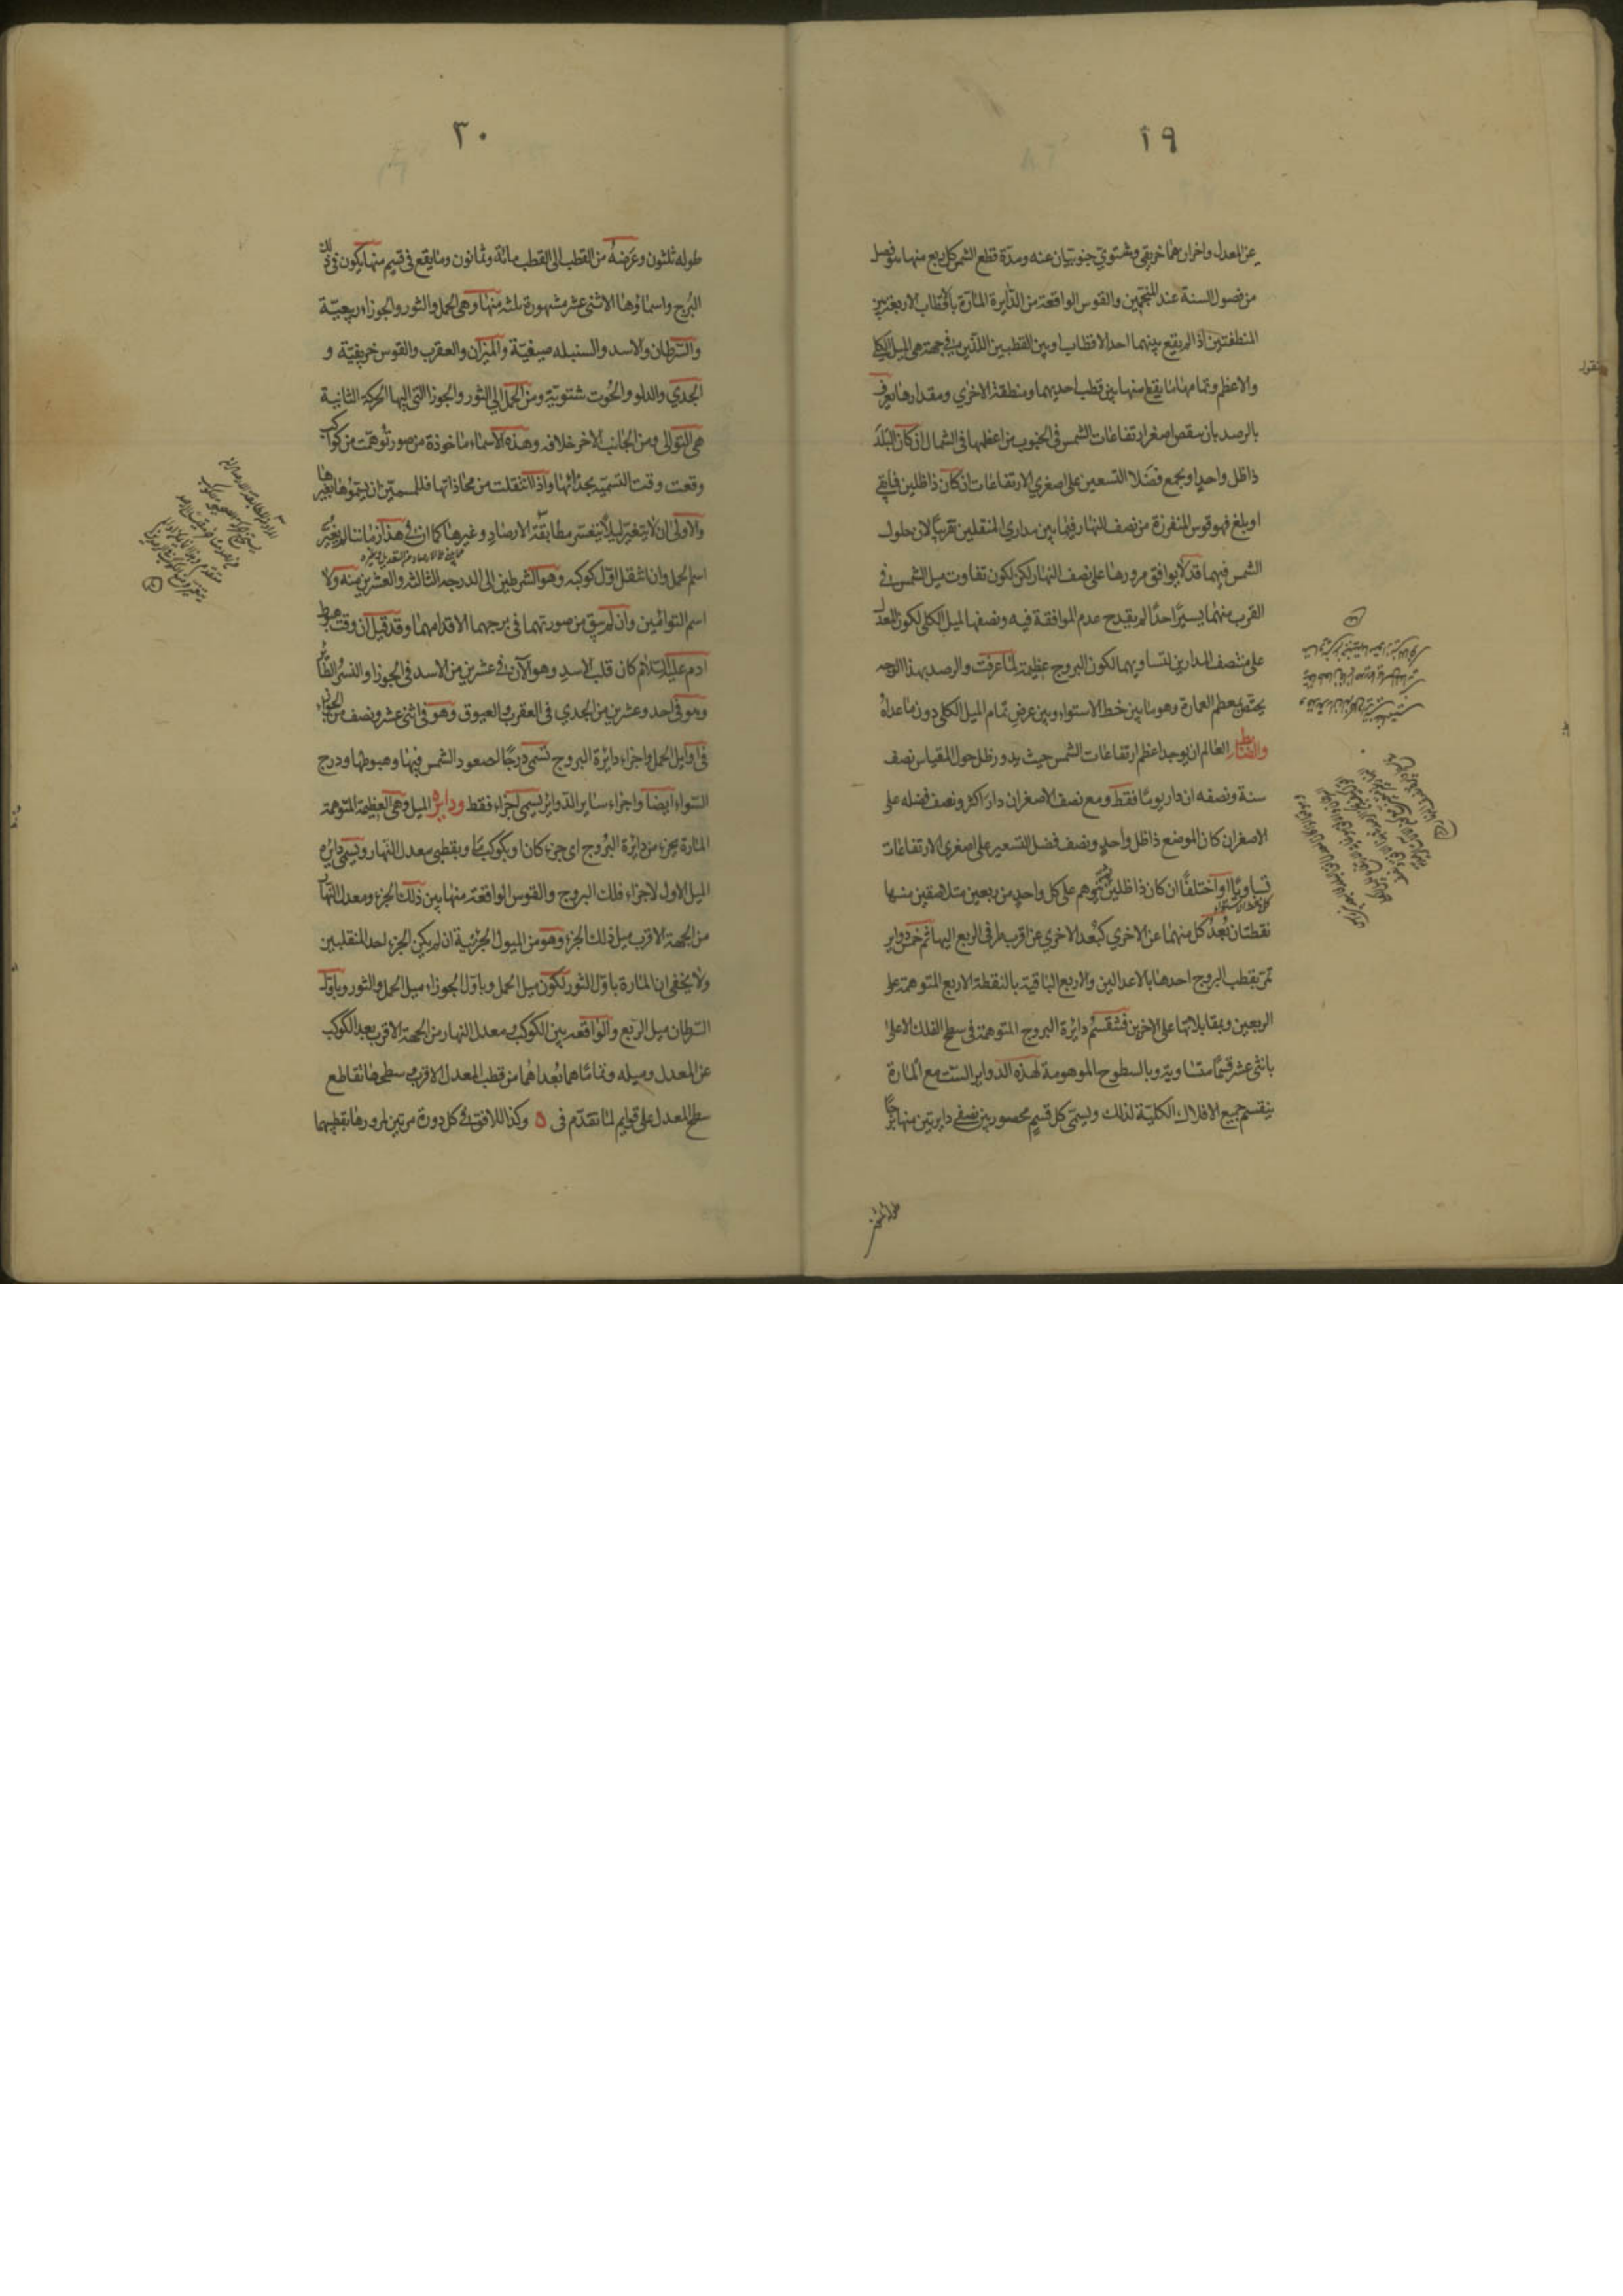 ٢٩
عن المعدل واخران هما خريفى وشتوى جنوبيتان عنه ومدة قطع الشمس كل ربع منها هو فصل
من فصول السنة عند المنجمين والقوس الواقعة من الدائرة المارة بالاقطاب الاربعة بين
المنطقتين اذا لم يقع بينهما احد الاقطاب او بين القطبين اللذين فى جهة هى الميل الكلى
والاعظم وتمامها ما يقع منها بين قطب احديهما ومنطقة الاخرى ومقدارها يعرف
بالرصد بان ينقص اصغر ارتفاعات الشمس فى الجنوب من اعظمها فى الشمال ان كان البلد
ذا ظل واحد او يجمع فضلا التسعين على اصغرى الارتفاعات ان كان ذا ظلين فما بقى
او بلغ فهو قوس المنفرزة من نصف النهار فيما بين مدارى المنقلبين تقريبا لان حلول
الشمس فيهما قد لا يوافق مرورها على نصف النهار لكن لكون تفاوت ميل الشمس فى
القرب منهما يسيرا جدا لم يقدح عدم الموافقة فيه ونصفها الميل الكلى لكون المعدل
على منتصف المدارين لتساويهما لكون البروج عظيمة لما عرفت والرصد بهذا الوجه
يختص بمعظم العمارة وهو ما بين خط الاستواء وبين عرض تمام الميل الكلى دون ما عداه
والضابط العالم ان يوجد اعظم ارتفاعات الشمس حيث يدور ظل حول المقياس نصف
سنة ونصفه ان دار يوما فقط ومع نصف الاصغر ان دار اكثر ونصف فضله على
الاصغر ان كان الموضع ذا ظل واحد ونصف فضل التسعين على اصغرى الارتفاعات
تساويا او اختلفا ان كان ذا ظلين ثم يتوهم على كل واحد من ربعين متلاصقين منها
نقطتان بعد كل منهما عن الاخرى كبعد الاخرى عن اقرب طرفى الربع اليها ثم خمس دواير
تمر بقطب البروج احدها بالاعتدالين والاربع الباقية بالنقطة الاربع المتوهمة على
الربعين وبمقابلاتها على الاخرين فتنقسم دائرة البروج المتوهمة فى سطح الفلك الاعلى
باثنى عشر قسما متساوية وبالسطوح الموهومة لهذه الدواير الست مع المارة
ينقسم جميع الافلاك الكلية لذلك ويسمى كل قسم محصور بين نصفى دايرتين منها برجا
٣٠
طوله ثلثون وعرضه من القطب الى القطب مائة وثمانون وما يقع فى قسم منها يكون فى ذلك
البرج واسماؤها الاثنى عشر مشهورة ثلثة منها وهى الحمل والثور والجوزاء ربيعية
والسرطان والاسد والسنبله صيفية والميزان والعقرب والقوس خريفية و
الجدي والدلو والحوت شتوية ومن الحمل الى الثور والجوزا التى اليها الحركة الثانية
هى التوالى ومن الجانب الاخر خلافه وهذه الاسماء ماخوذة من صور توهمت من كواكب
وقعت وقت التسمية بحذائها واذا انتقلت من محاذاتها فللمسمين ان يسموها بغيرها
والاولى ان لا يتغير ليلا يتعسر مطابقة الارصاد وغيرها كما ان فى هذا زماننا لم يغير
اسم الحمل وان انتقل اول كوكبه وهو الشرطين الى الدرجه الثالثه والعشرين منه ولا
اسم التوائمين وان لم يبق من صورتهما فى برجهما الا قدامهما وقد قيل ان وقت هبوط
ادم عليه السلام كان قلب الاسد وهو الان فى عشرين من الاسد فى الجوزا والنسر الطاير
وهو فى احد وعشرين من الجدي فى العقرب والعيوق وهو فى اثنى عشر ونصف من الجوزاء
فى اوايل الحمل واجزاء دايرة البروج تسمى درجا لصعود الشمس فيها وهبوطها ودرج
السواء ايضا واجزاء ساير الدواير يسمى اجزاء فقط ودايره الميل وهى العظيمة المتوهمة
المارة بجزء من دائرة البروج اى جزء كان او بكوكب ما وبقطبى معدل النهار ويسمى دائره
الميل الاول لاجزاء فلك البروج والقوس الواقعة منها بين ذلك الجزء ومعدل النهار
من الجهة الاقرب ميل ذلك الجزء وهو من الميول الجزئية ان لم يكن الجزء احد المنقلبين
ولا يخفى ان المارة باول الثور لكون ميل الحمل وباول الجوزاء ميل الحمل والثور وباول
السرطان ميل الربع والواقعه بين الكوكب ومعدل النهار من الجهة الاقرب بعد الكوكب
عن المعدل وميله وتماماهما بعداهما من قطب المعدل الاقرب وسطحها تقاطع
سطح المعدل على قوايم لما تقدم فى ٥ وكذا للافق فى كل دورة مرتين لمرورها بقطبيهما